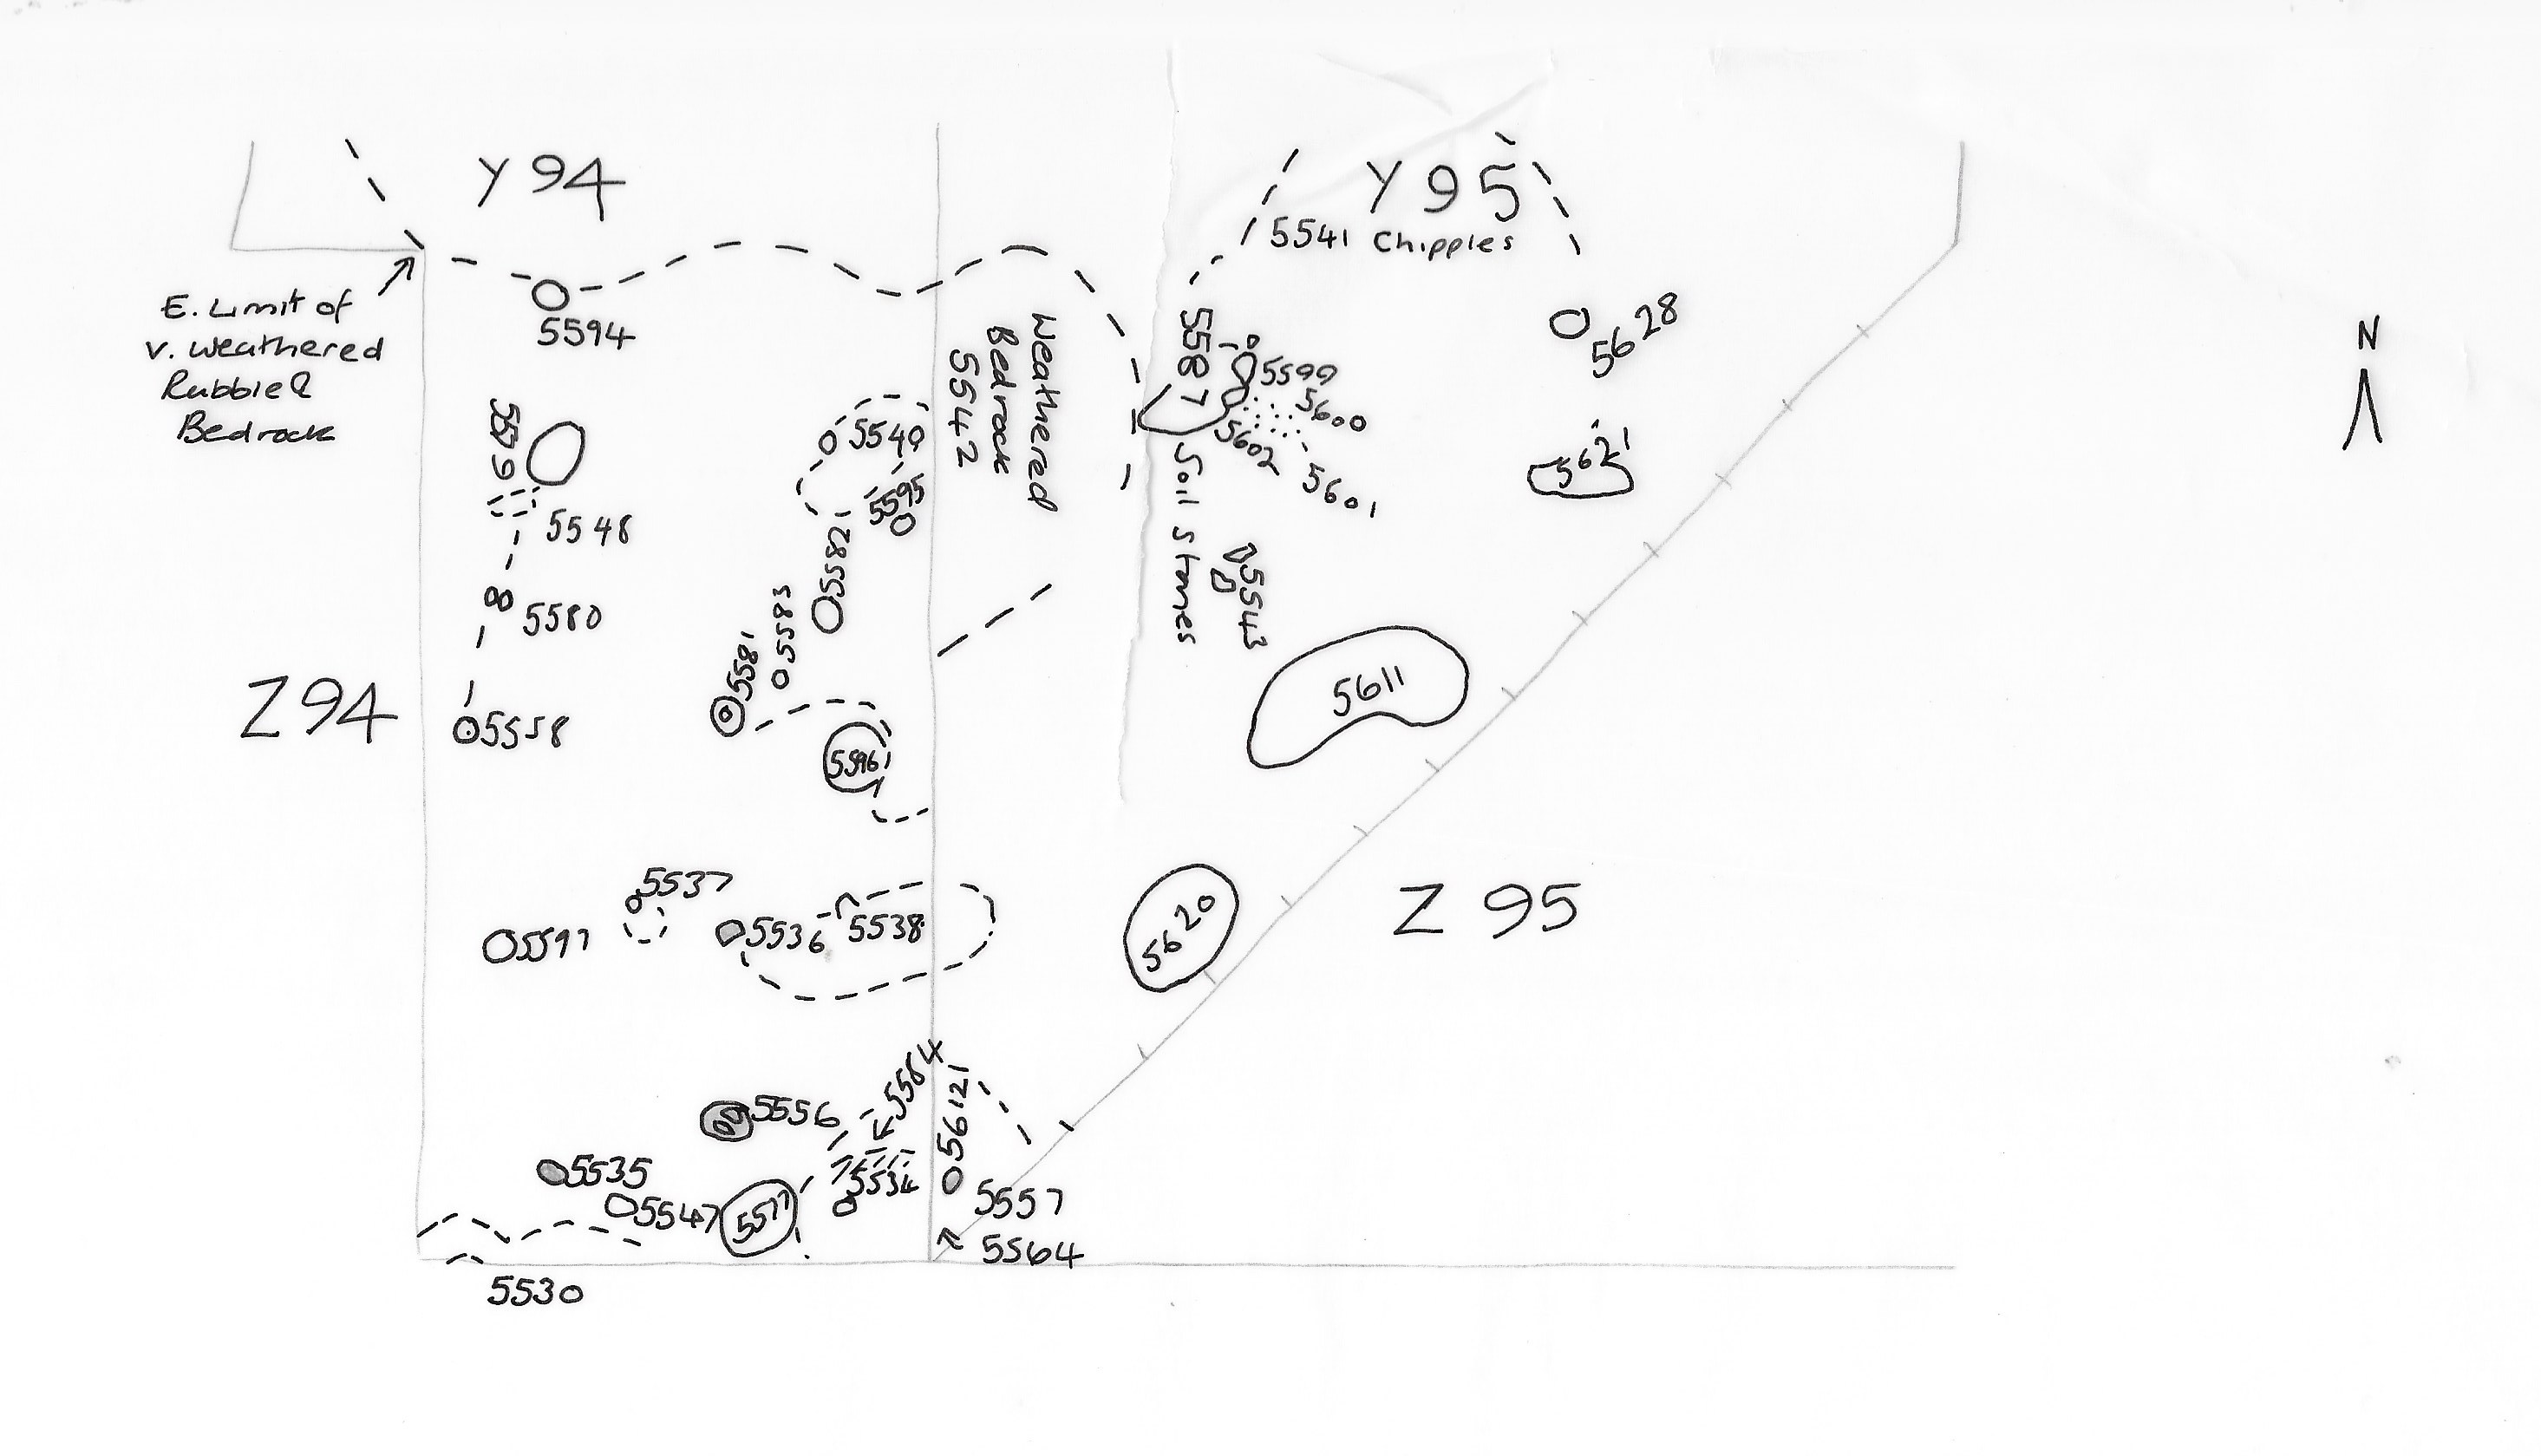 Y 94
Y 95
5541 Chipples
E. Limit of
v. weathered
Rubble &
Bedrock
5594
5628
N
Weathered
Bedrock
5542
5587
5599
5600
5602
5601
5540
5595
5621
5548
5582
Soil Stones
5543
5580
5583
5581
5611
Z 94
5558
5596
5537
5597
5536
5538
5620
Z 95
5564
5556
5612
5535
5534
5547
5577
5557
5564
5530